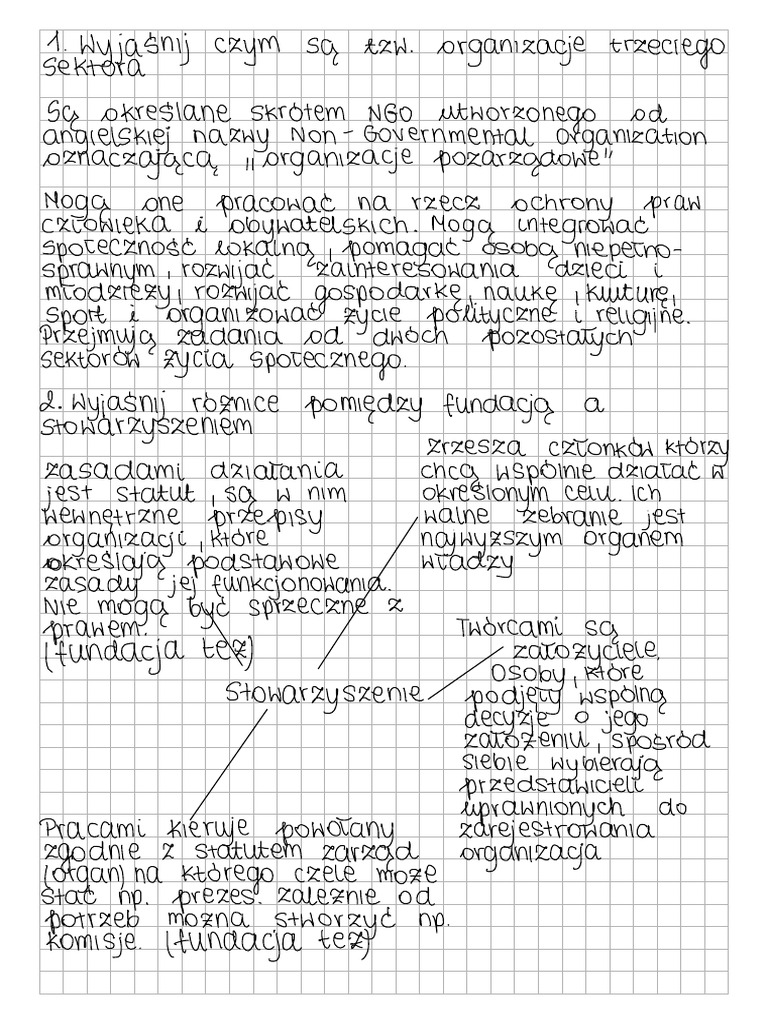 1. Wyjaśnij czym są tzw. organizacje trzeciego
sektora
Są określane skrótem NGO utworzonego od
angielskiej nazwy Non-Governmental organization
oznaczającą „organizacje pozarządowe"
Mogą one pracować na rzecz ochrony praw
człowieka i obywatelskich. Mogą integrować
społeczność lokalną, pomagać osobą niepełno-
sprawnym, rozwijać zainteresowania dzieci i
młodzieży, rozwijać gospodarkę, naukę, kulturę,
sport i organizować życie polityczne i religijne.
Przejmują zadania od dwóch pozostałych
sektorów życia społecznego.
2. Wyjaśnij różnice pomiędzy fundacją a
stowarzyszeniem
zasadami działania
jest statut, są w nim
wewnętrzne przepisy
organizacji, które
określają podstawowe
zasady jej funkcjonowania.
Nie mogą być sprzeczne z
prawem.
(fundacja też)
zrzesza członków którzy
chcą wspólnie działać w
określonym celu. Ich
walne zebranie jest
najwyższym organem
władzy
Stowarzyszenie
Twórcami są
założyciele.
Osoby, które
podjęły wspólną
decyzje o jego
założeniu, spośród
siebie wybierają
przedstawicieli
uprawnionych do
zarejestrowania
organizacja
Pracami kieruje powołany
zgodnie z statutem zarząd
(organ) na którego czele może
stać np. prezes. zależnie od
potrzeb można stworzyć np.
komisje. (fundacja też)